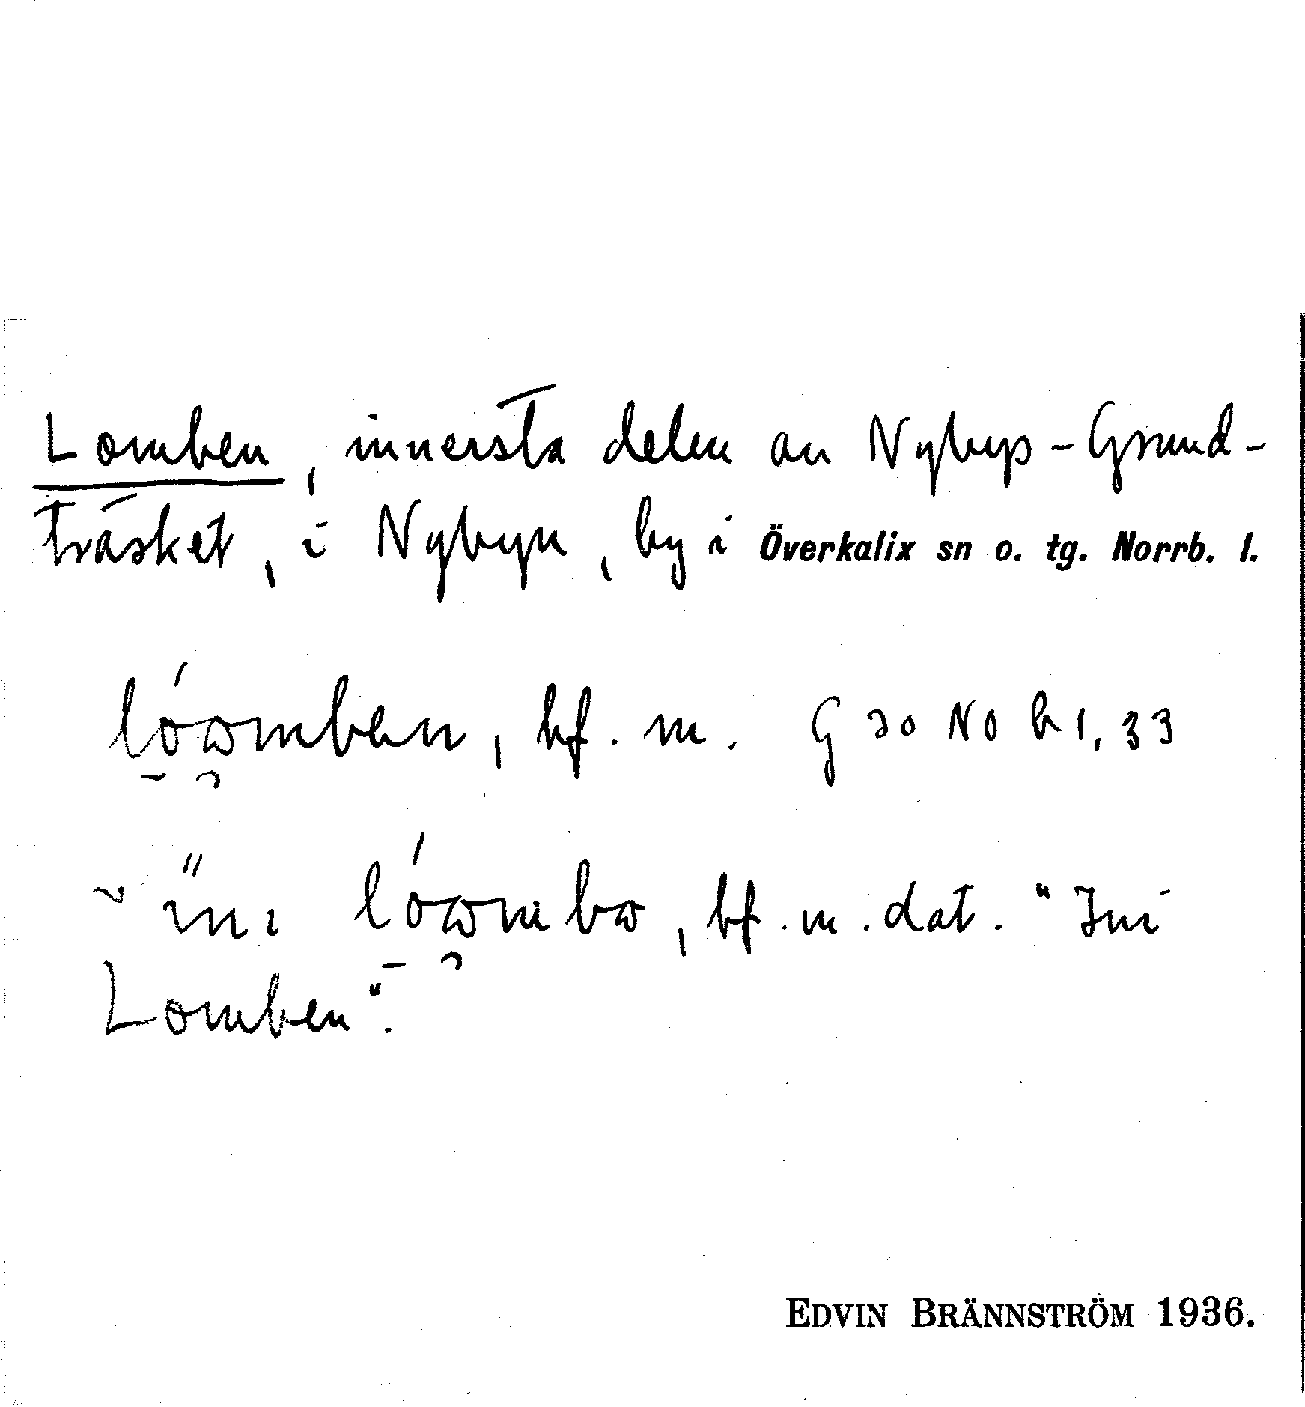 Lomben, innersta delen av Nybyp-Grund-
träsket, i Nybyn, by i Överkalix sn o. tg. Norrb. l.
lóωmben, bf. m. G 30 NO b 1, 33
~ ini lóωmbω, bf. m. dat. "Ini
Lomben".
EDVIN BRÄNNSTRÖM 1936.